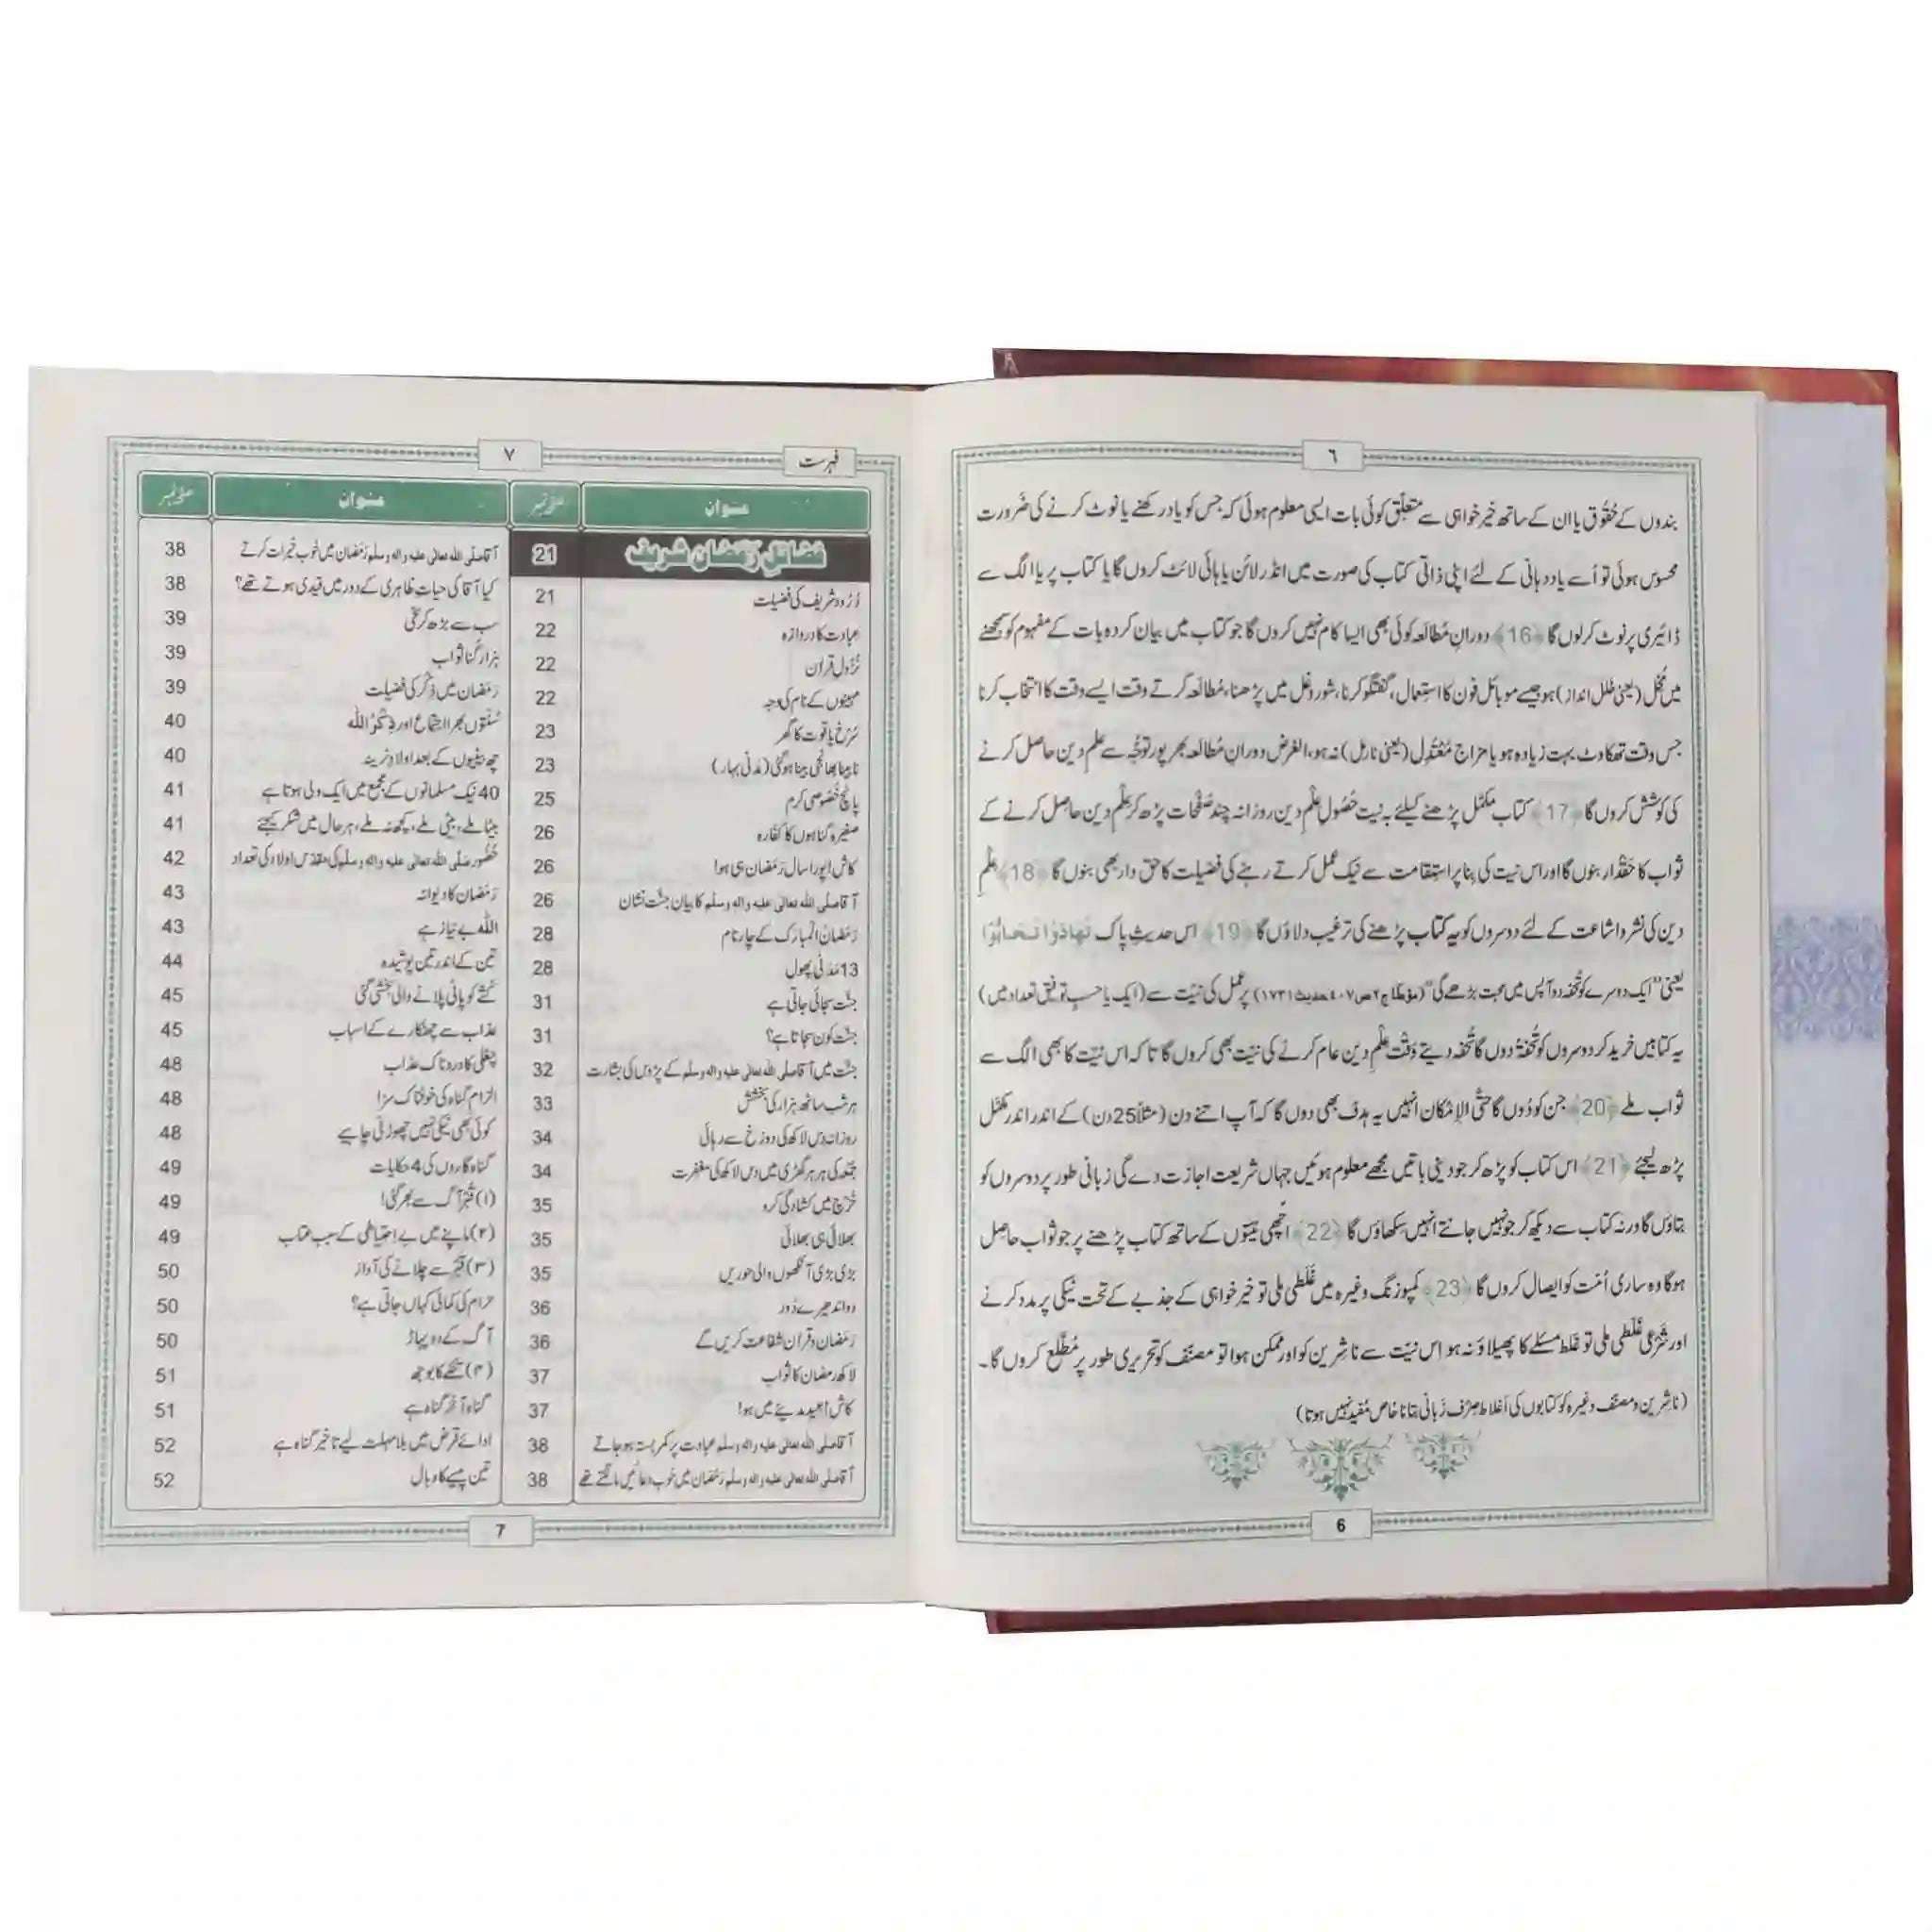 ٦
بندوں کے حُقُوق یا ان کے ساتھ خیر خواہی سے متعلّق کوئی بات ایسی معلوم ہوئی کہ جس کو یاد رکھنے یا نوٹ کرنے کی ضَرورت
محسوس ہوئی تو اُسے یاد دہانی کے لئے اپنی ذاتی کتاب کی صورت میں انڈر لائن یا ہائی لائٹ کروں گا یا کتاب پر یا الگ سے
ڈائیری پر نوٹ کرلوں گا ﴿16﴾ دورانِ مُطالعہ کوئی بھی ایسا کام نہیں کروں گا جو کتاب میں بیان کردہ بات کے مفہوم کو سمجھنے
میں مُخِل (یعنی خلل انداز) ہو جیسے موبائل فون کا استِعمال، گفتگو کرنا، شور و غل میں پڑھنا، مُطالَعہ کرتے وقت ایسے وقت کا انتخاب کرنا
جس وقت تھکاوٹ بہت زیادہ ہو یا مزاج مُعْتَدِل (یعنی نارمل) نہ ہو، الغرض دورانِ مُطالعہ بھر پور توجُّہ سے علمِ دین حاصل کرنے
کی کوشش کروں گا ﴿17﴾ کتاب مکمَّل پڑھنے کیلئے بہ نیتِ حُصُولِ علمِ دین روزانہ چند صَفْحات پڑھ کر علمِ دین حاصِل کرنے کے
ثواب کا حَقْدار بنوں گا اور اس نیت کی بِنا پر استِقامت سے نیک عمل کرتے رہنے کی فضیلت کا حق دار بھی بنوں گا ﴿18﴾ علمِ
دین کی نشر و اشاعت کے لئے دوسروں کو یہ کتاب پڑھنے کی ترغیب دلاؤں گا ﴿19﴾ اس حدیثِ پاک تَهَادَوْا تَحَابُّوْا
یعنی ”ایک دوسرے کو تُحفہ دو آپس میں محبت بڑھے گی“ (مؤطّا ج٢ ص٤٠٧ حدیث١٧٣١) پر عمل کی نیّت سے (ایک یا حسبِ توفیق تعداد میں)
یہ کتابیں خرید کر دوسروں کو تُحفۃً دوں گا تُحفہ دیتے وَقْت علمِ دین عام کرنے کی نیّت بھی کروں گا تا کہ اس نیّت کا بھی الگ سے
ثواب ملے ﴿20﴾ جن کو دُوں گا حتَّی الاِمکان انہیں یہ ہدف بھی دوں گا کہ آپ اتنے دن (مثلاً 25 دن) کے اندر اندر مکمَّل
پڑھ لیجئے ﴿21﴾ اس کتاب کو پڑھ کر جو دینی باتیں مجھے معلوم ہوئیں جہاں شریعت اجازت دے گی زبانی طور پر دوسروں کو
بتاؤں گا ورنہ کتاب سے دیکھ کر جو نہیں جانتے انہیں سکھاؤں گا ﴿22﴾ اچّھی نیّتوں کے ساتھ کتاب پڑھنے پر جو ثواب حاصل
ہوگا وہ ساری اُمّت کو ایصال کروں گا ﴿23﴾ کمپوزنگ وغیرہ میں غَلَطی ملی تو خیر خواہی کے جذبے کے تحت نیکی پر مدد کرنے
اور شَرْعی غَلَطی ملی تو غلط مسئلے کا پھیلاؤ نہ ہو اس نیّت سے ناشِرین کو اور ممکن ہوا تو مصنّف کو تحریری طور پر مُطَّلع کروں گا۔
(ناشِرین و مصنّف وغیرہ کو کتابوں کی اَغلاط صِرف زَبانی بتانا خاص مُفید نہیں ہوتا)
6
فہرست
٧
عنوان صفحہ نمبر
فضائلِ رمضان شریف 21
دُرُود شریف کی فضیلت 21
عبادت کا دروازہ 22
نُزُولِ قران 22
مہینوں کے نام کی وجہ 22
سُرخ یاقوت کا گھر 23
نابینا بھانجی بینا ہوگئی (مَدَنی بہار) 23
پانچ خُصُوصی کرم 25
صغیرہ گناہوں کا کفّارہ 26
کاش! پورا سال رَمَضان ہی ہو! 26
آقا صلی اللہ تعالٰی علیہ واٰلہ وسلم کا بیانِ جنّت نشان 26
رَمَضانُ المبارَک کے چار نام 28
13 مَدَنی پھول 28
جنّت سجائی جاتی ہے 31
جنّت کون سجاتا ہے؟ 31
جنّت میں آقا صلی اللہ تعالٰی علیہ واٰلہ وسلم کے پڑوس کی بشارت 32
ہر شب ساٹھ ہزار کی بخشش 33
روزانہ دس لاکھ کی دوزخ سے رہائی 34
جُمعہ کی ہر ہر گھڑی میں دس لاکھ کی مغفرت 34
خَرچ میں کشادگی کرو 35
بھلائی ہی بھلائی 35
بڑی بڑی آنکھوں والی حوریں 35
دو اندھیرے دُور 36
رَمَضان و قران شفاعت کریں گے 36
لاکھ رمضان کا ثواب 37
کاش! عید مدینے میں ہو! 37
آقا صلی اللہ تعالٰی علیہ واٰلہ وسلم عبادت پر کمر بستہ ہو جاتے 38
آقا صلی اللہ تعالٰی علیہ واٰلہ وسلم رَمَضان میں خوب دعائیں مانگتے تھے 38
عنوان صفحہ نمبر
آقا صلی اللہ تعالٰی علیہ واٰلہ وسلم رَمَضان میں خوب خیرات کرتے 38
کیا آقا کی حیاتِ ظاہری کے دور میں قیدی ہوتے تھے؟ 38
سب سے بڑھ کر سخی 39
ہزار گُنا ثواب 39
رَمَضان میں ذِکْر کی فضیلت 39
سُنّتوں بھرا اجتماع اور ذِکْرُ اللہ 40
چھ بیٹیوں کے بعد اولادِ نرینہ 40
40 نیک مسلمانوں کے مجمع میں ایک ولی ہوتا ہے 41
بیٹا ملے، بیٹی ملے، کچھ نہ ملے، ہر حال میں شکر کیجئے 41
حُضُور صلی اللہ تعالٰی علیہ واٰلہ وسلم کی مقدّس اولاد کی تعداد 42
رَمَضان کا دیوانہ 43
اللہ بے نیاز ہے 43
تین کے اندر تین پوشیدہ 44
کُتّے کو پانی پلانے والی بخشی گئی 45
عذاب سے چھٹکارے کے اسباب 45
چغلی کا دردناک عذاب 48
الزامِ گناہ کی خوفناک سزا 48
کوئی بھی نیکی نہیں چھوڑنی چاہیے 48
گناہ گاروں کی 4 حکایات 49
(١) قَبْر آگ سے بھر گئی! 49
(٢) ماپنے میں بے احتیاطی کے سبب عتاب 49
(٣) قَبْر سے چلّانے کی آواز 50
حرام کی کمائی کہاں جاتی ہے؟ 50
آگ کے دو پہاڑ 50
(٤) تنکے کا بوجھ 51
گناہ آخر گناہ ہے 51
ادائے قرض میں بلا مہلت لیے تاخیر گناہ ہے 52
تین پیسے کا وبال 52
7